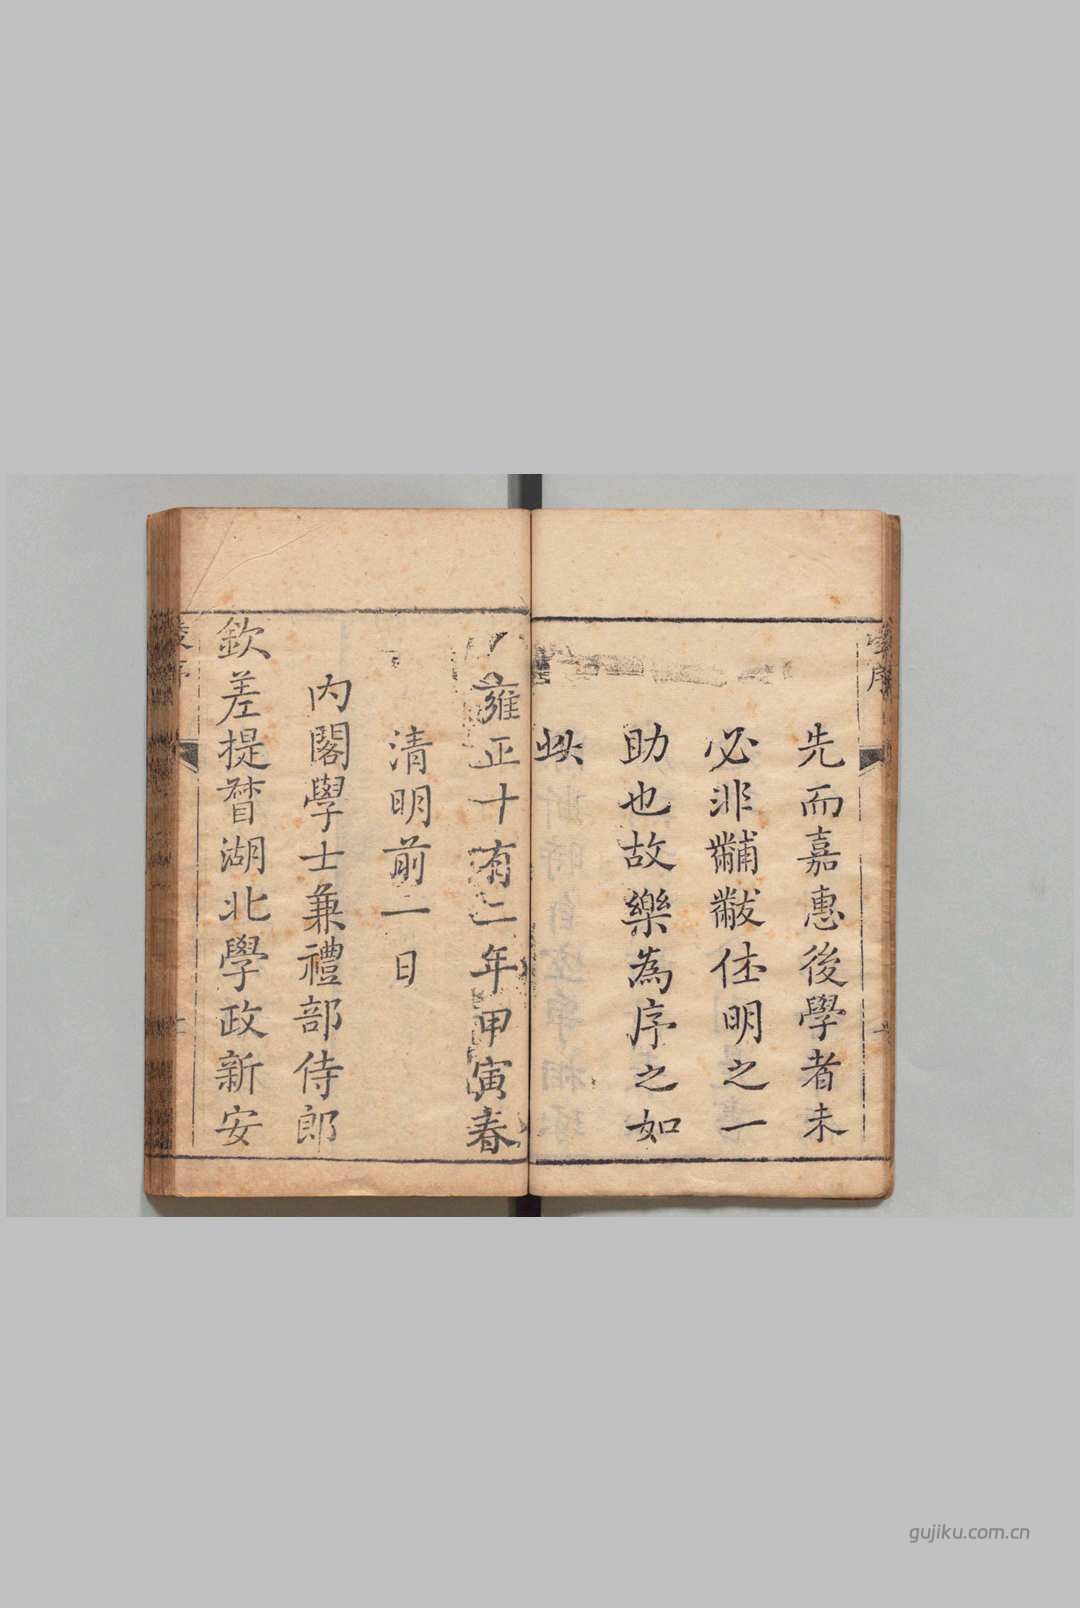 先而嘉惠後學者未
必非黼黻休明之一
助也故樂為序之如
此
雍正十有二年甲寅春
清明前一日
內閣學士兼禮部侍郎
欽差提督湖北學政新安
gujiku.com.cn